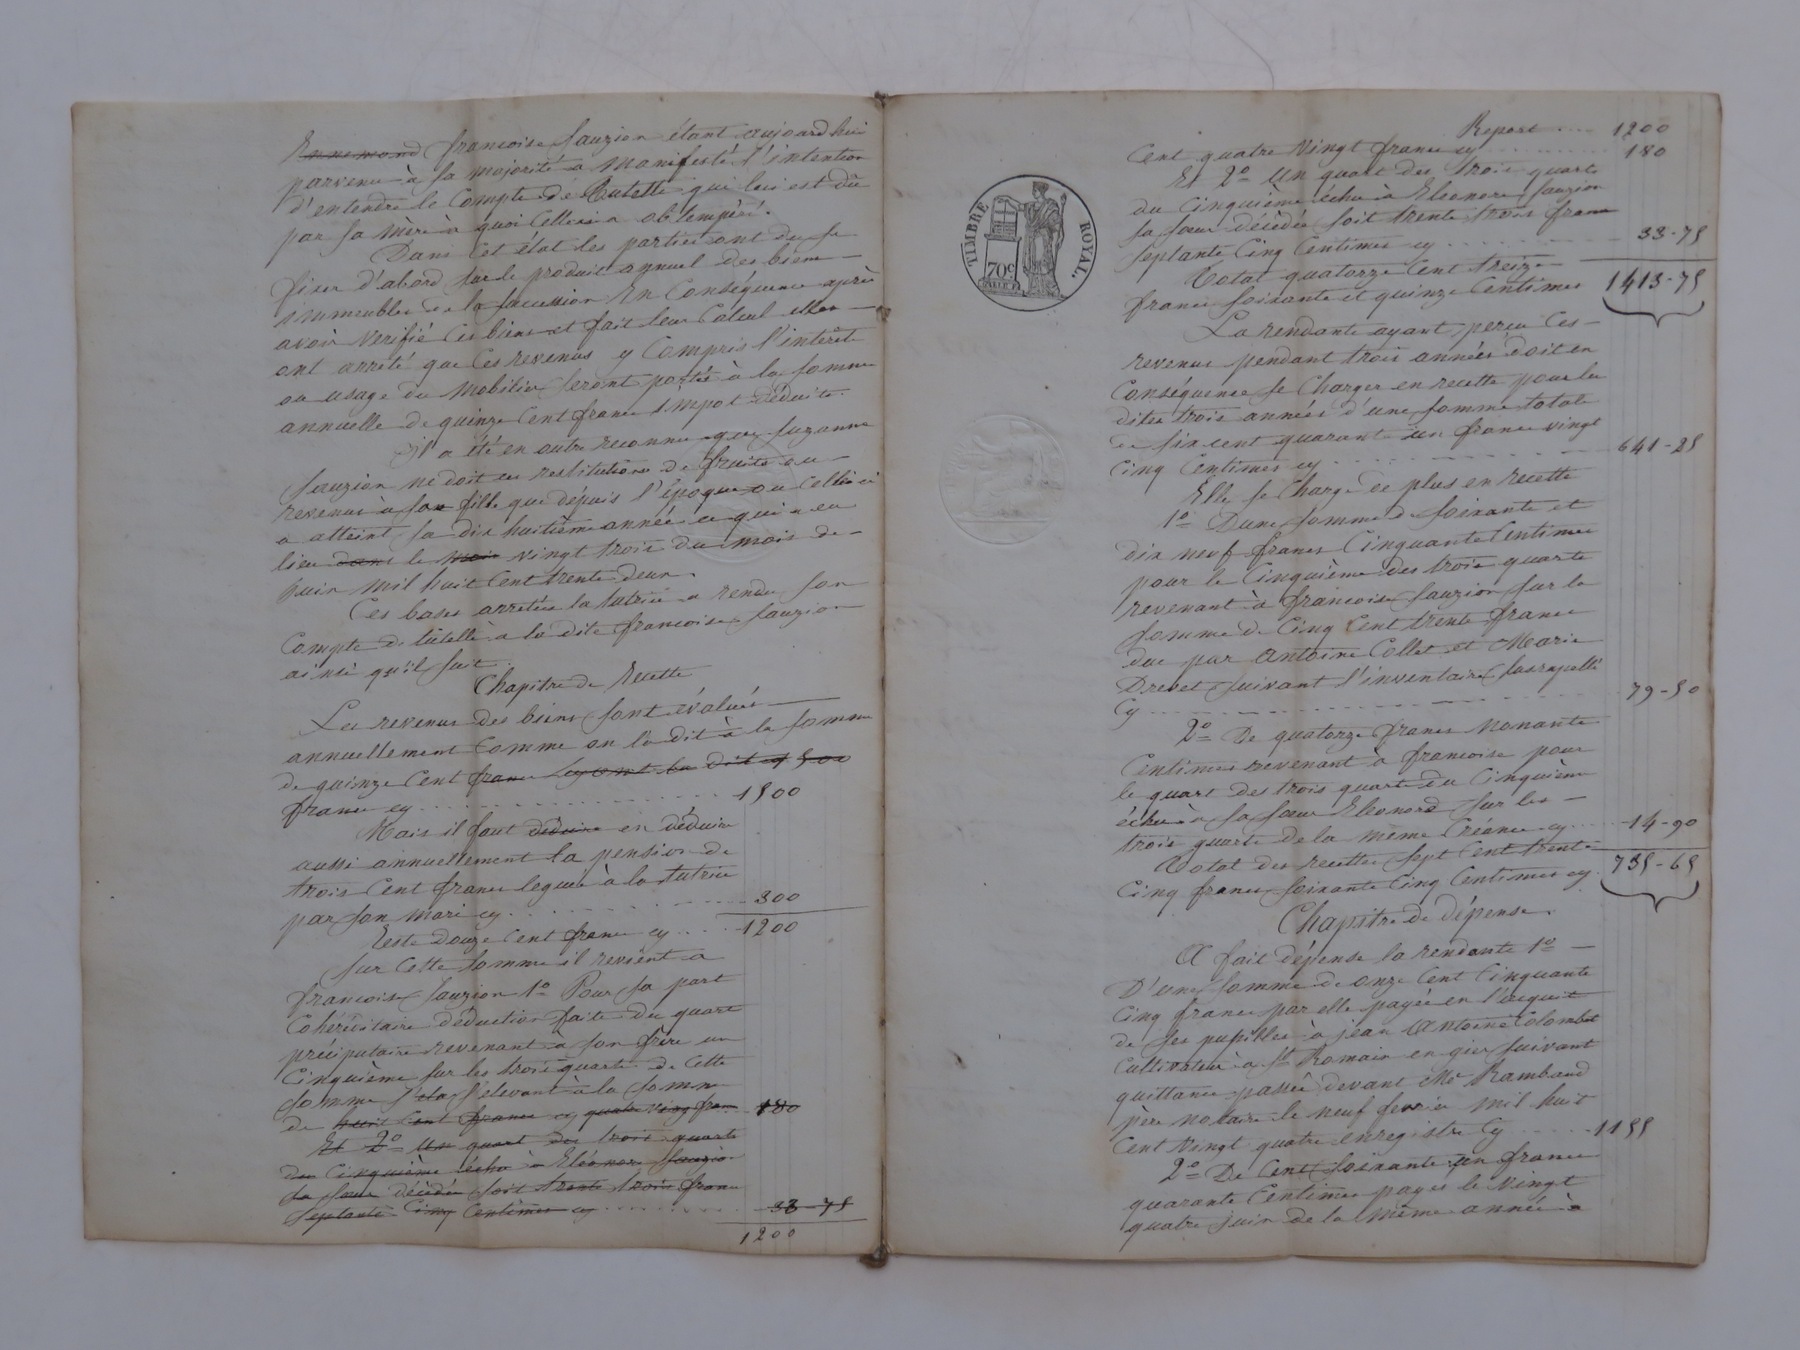 Ennemond françoise Sauzion étant aujourd'hui
parvenue à sa majorité a manifesté l'intention
d'entendre le Compte de Tutelle qui lui est dû
par sa mère à quoi Celle ci a obtempéré.
Dans Cet état les parties ont du se
fixer d'abord sur le produit annuel des biens
immeubles de la succession En Conséquence après
avoir vérifié Ces biens et fait leur Calcul elles
ont arrêté que Ces revenus y Compris l'intérêt
ou usage du mobilier seront portés à la somme
annuelle de quinze Cent francs impot déduits.
Il a été en outre reconnu que Suzanne
Sauzion ne doit en restitution de fruits ou
revenus à son fille que dépuis l'époque ou Celle ci
a atteint sa dix huitième année ce qui a eu
lieu dans le mois vingt trois du mois de
juin mil huit Cent trente deux.
Ces bases arretées la tutrice a rendu son
Compte de tutelle a la dite françoise Sauzion
ainsi qu'il suit
Chapitre de Recette
Les revenus des biens sont évalués
annuellement Comme on l'a dit à la somme
de quinze Cent francs 1500
francs cy 1500
Mais il faut déduire en déduire
aussi annuellement la pension de
trois Cent francs leguée à la tutrice
par son mari cy 300
Reste douze Cent francs cy 1200
Sur Cette somme il revient a
françoise Sauzion 1o Pour sa part
Cohéréditaire déduction faite du quart
préciputaire revenant à son frère un
Cinquième sur les trois quarts de Cette
somme s'élevant à la somme
de huit Cent francs cy quatre ving fran 180
Et 2o Un quart des trois quarts
du Cinquième échu à Eléonore Sauzion
sa sœur décédée soit trente trois francs
septante Cinq Centimes cy 33-75
1200
Report 1200
Cent quatre Vingt francs cy 180
Et 2o Un quart des trois quarts
du Cinquième échu à Eleonore Sauzion
sa sœur décédée soit trente trois francs
septante Cinq Centimes cy 33-75
Total quatorze Cent treize
francs soixante et quinze Centimes 1413-75
TIMBRE ROYAL.
70c
La rendante ayant perçu Ces
revenus pendant trois années doit en
Conséquence se Charger en recette pour les
dites trois années d'une somme totale
de six cent quarante un francs vingt
Cinq Centimes cy 641-25
Elle se Charge de plus en recette
1o D'une somme de soixante et
dix neuf francs Cinquante Centimes
pour le Cinquième des trois quarts
revenant à françoise Sauzion sur la
somme de Cinq Cent trente francs
due par Antoine Collet et Marie
Drevet suivant l'inventaire susrapellé
Cy 79-50
2o De quatorze francs nonante
Centimes revenant à françoise pour
le quart des trois quarts du Cinquième
échu à sa sœur Eleonore sur les
trois quarts de la même Créance cy 14-90
Total des recettes sept Cent trente
Cinq francs soixante Cinq Centimes cy 735-65
Chapitre de dépense.
A fait dépense la rendante 1o
D'une somme de onze Cent Cinquante
Cinq francs par elle payée en l'acquit
de ses pupilles à jean Antoine Colombet
Cultivateur à St Romain en gier suivant
quittance passée devant Me Rambaud
père notaire le neuf fevrier mil huit
Cent vingt quatre enregistré Cy 1155
2o De Cent soixante un francs
quarante Centimes payés le vingt
quatre juin de la même année à